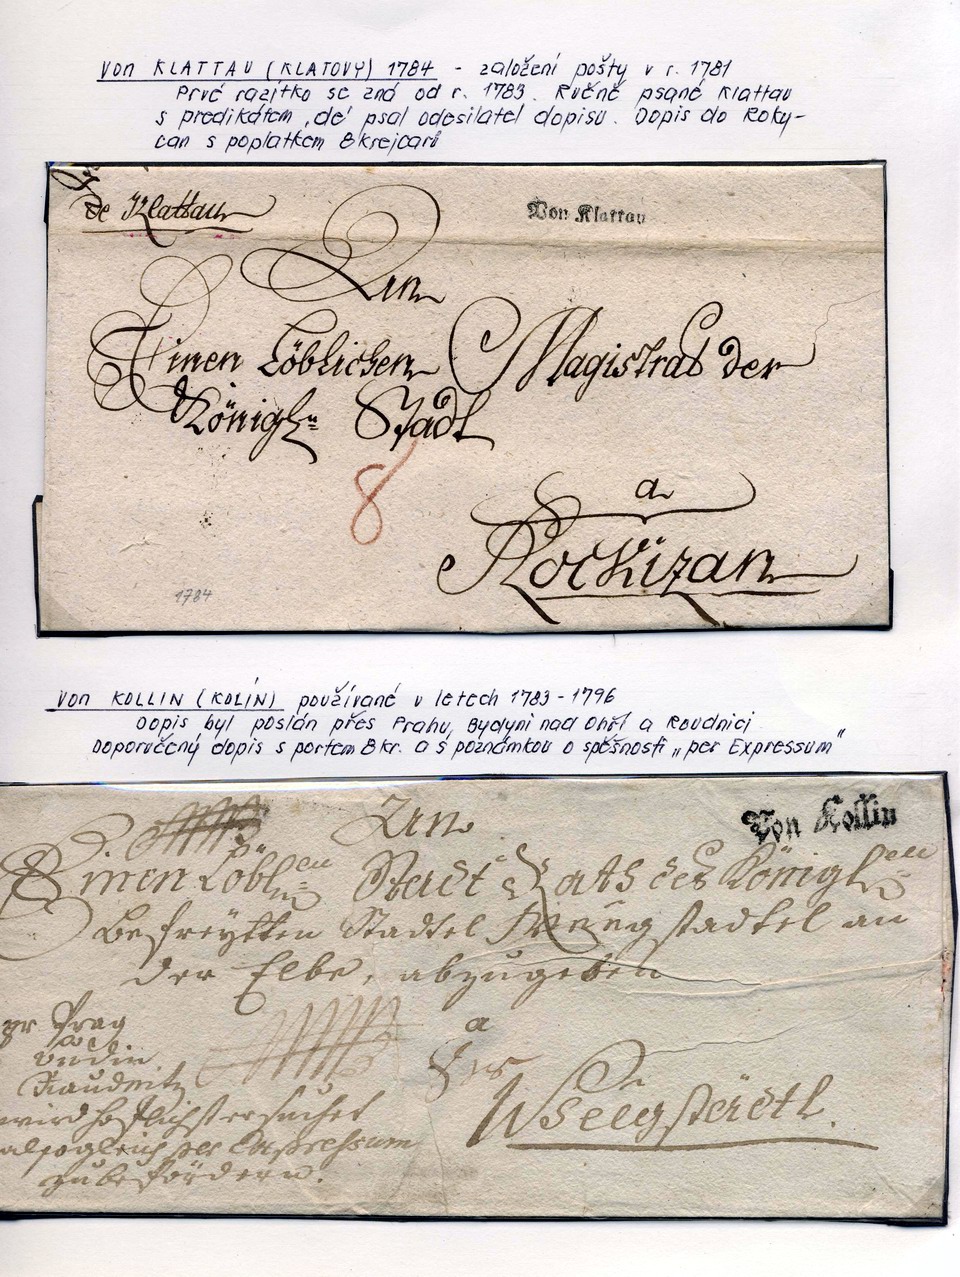 VON KLATTAU (KLATOVY) 1784 - založení pošty v r. 1781
Prvé razítko se zná od r. 1783. Ručně psané Klattau
s predikátem „de" psal odesilatel dopisu. Dopis do Roky-
can s poplatkem 8 krejcarů
de Klattau
Von Klattau
An
Einen Löblichen Magistrat der
Königln Stadt
8
a
Rockizan
1784
VON KOLLIN (KOLÍN) používané v letech 1783-1796
Dopis byl poslán přes Prahu, Budyni nad Ohří a Roudnici
Doporučený dopis s portem 8 kr. a s poznámkou o spěšnosti „per Expressum"
An
Von Kollin
Einen Löblen Königlen
befreÿtten Stadtel an
der Elbe, abzugeben
pr Prag
Budin
Raudnitz
wird höflichst ersuchet
alsogleich per Expressum
zu befördern.
a